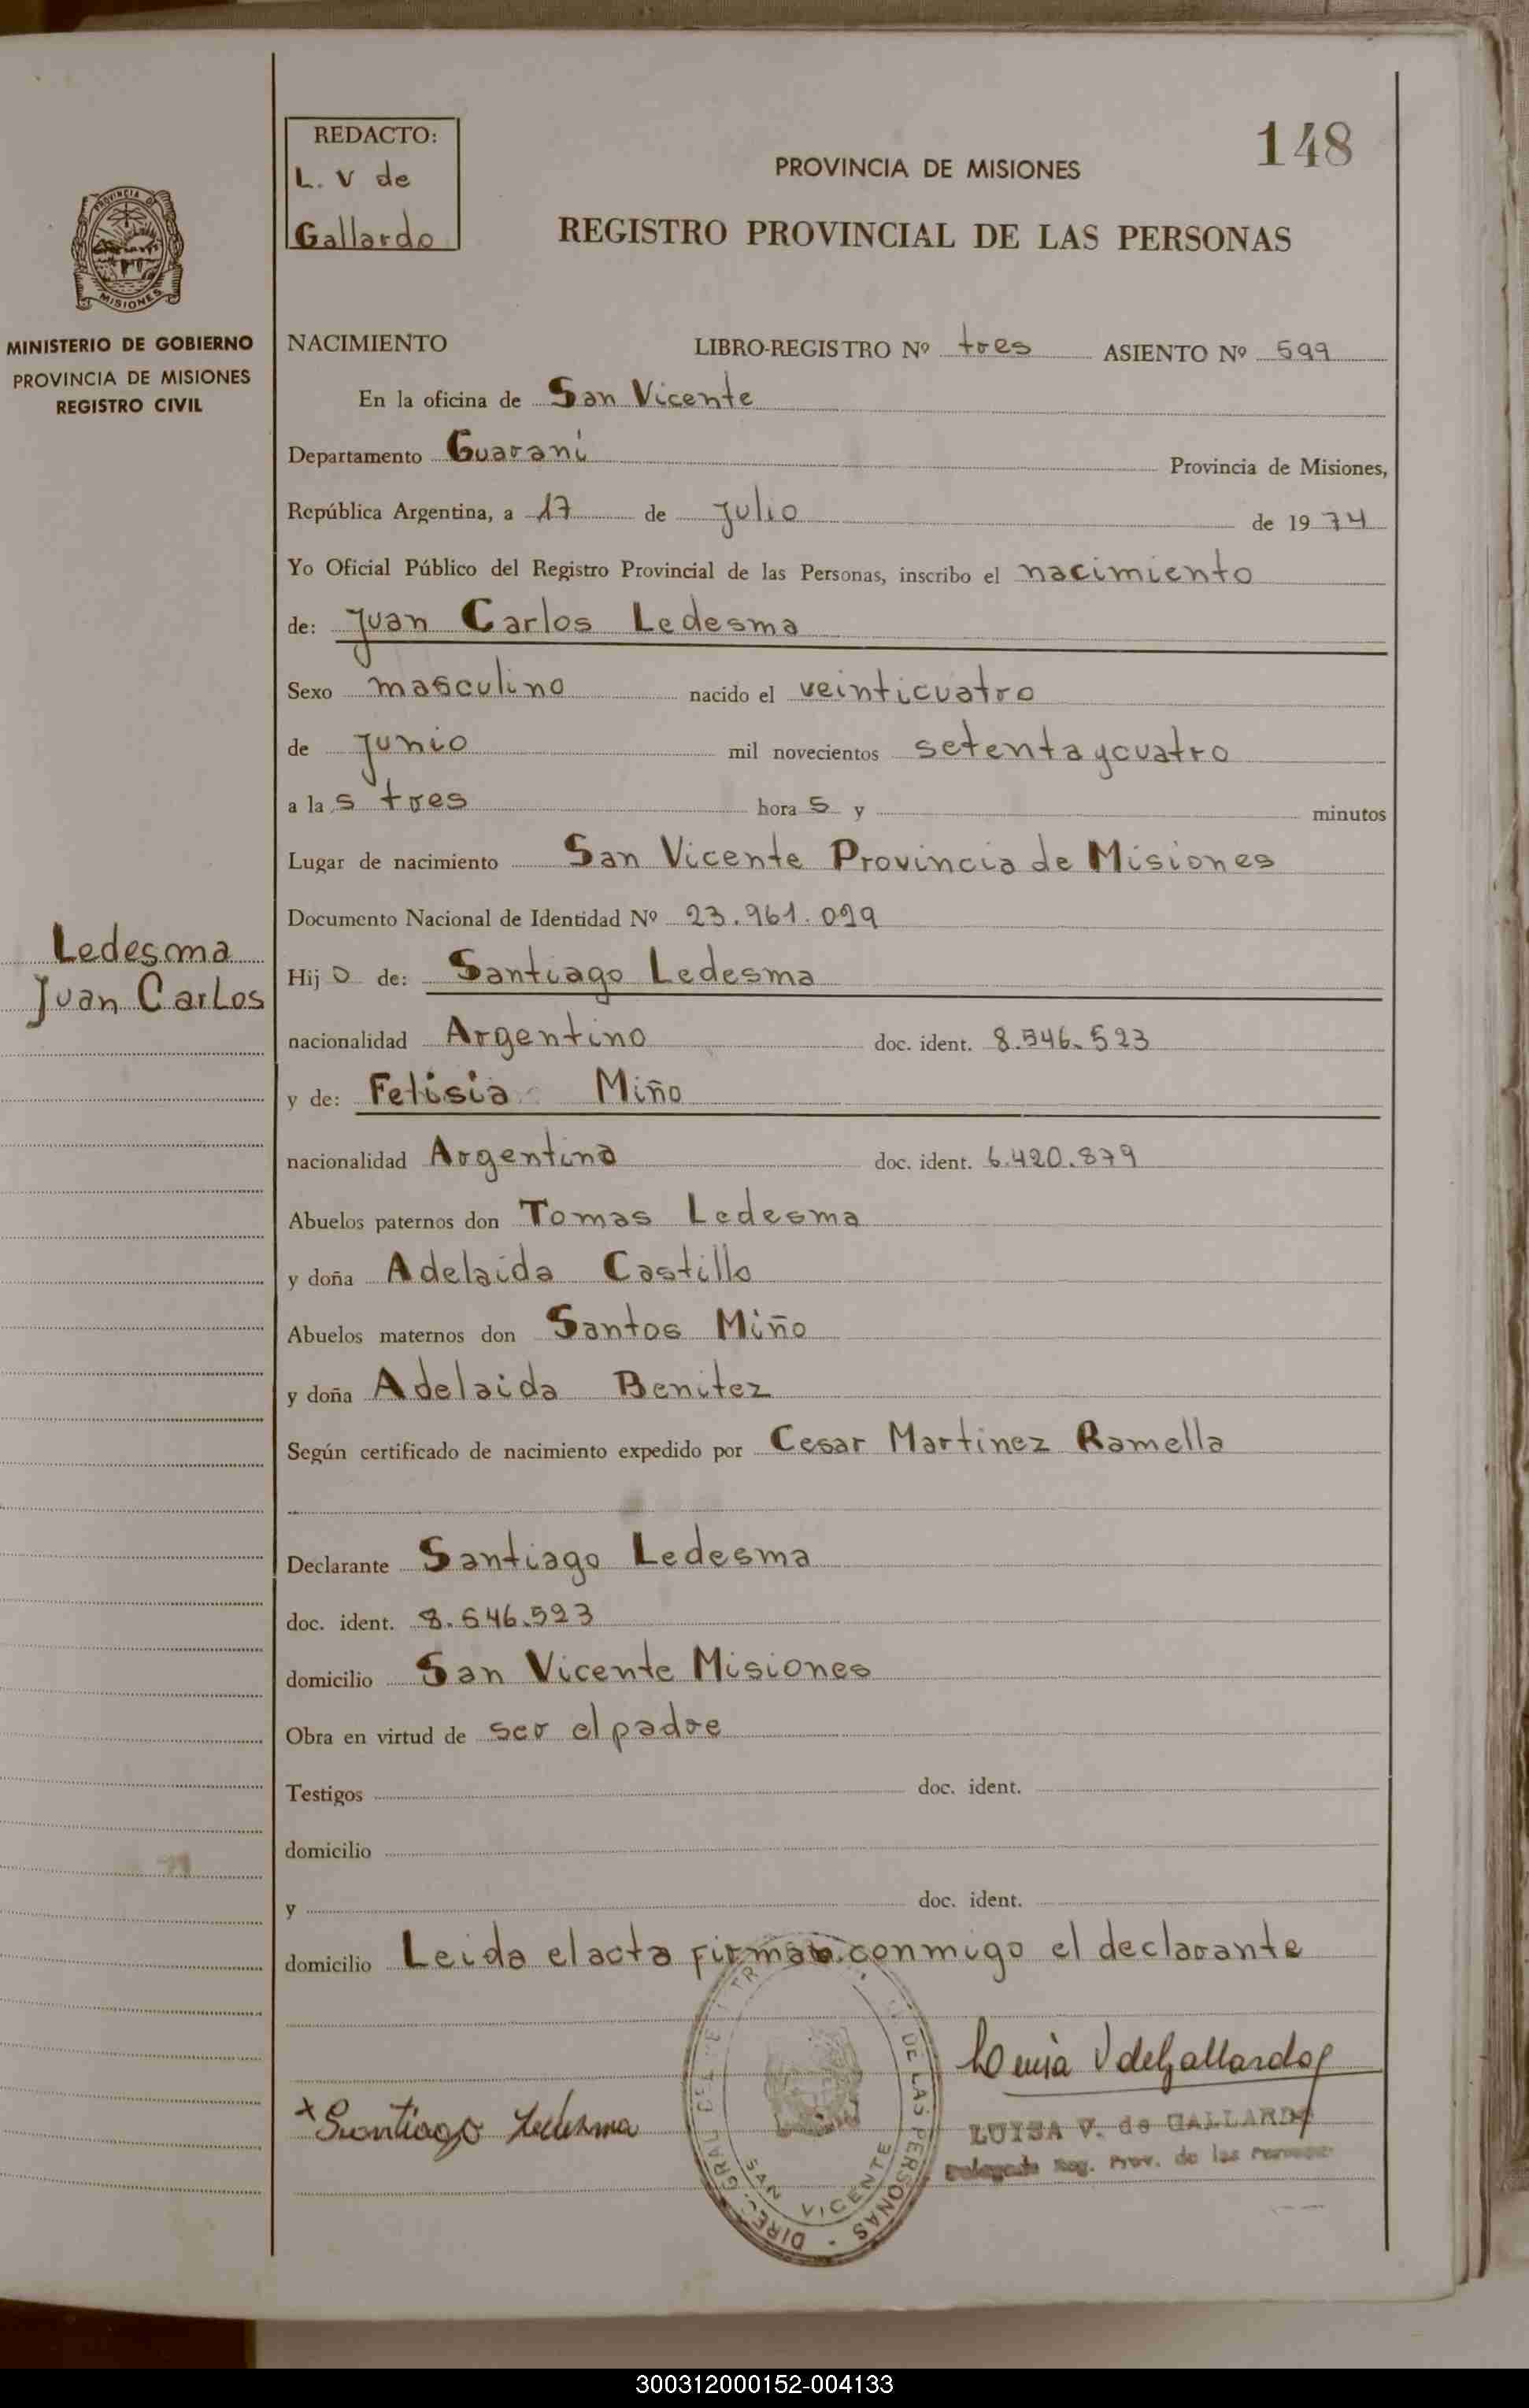 148
REDACTO:
L. V de
Gallardo
PROVINCIA DE MISIONES
REGISTRO PROVINCIAL DE LAS PERSONAS
PROVINCIA D
MISIONES
MINISTERIO DE GOBIERNO
PROVINCIA DE MISIONES
REGISTRO CIVIL
Ledesma
Juan Carlos
NACIMIENTO LIBRO-REGISTRO Nº tres ASIENTO Nº 599
En la oficina de San Vicente
Departamento Guaraní Provincia de Misiones,
República Argentina, a 17 de julio de 1974
Yo Oficial Público del Registro Provincial de las Personas, inscribo el nacimiento
de: Juan Carlos Ledesma
Sexo masculino nacido el veinticuatro
de Junio mil novecientos setenta y cuatro
a la s tres hora s y minutos
Lugar de nacimiento San Vicente Provincia de Misiones
Documento Nacional de Identidad Nº 23.961.099
Hij o de: Santiago Ledesma
nacionalidad Argentino doc. ident. 8.546.523
y de: Felisia Miño
nacionalidad Argentina doc. ident. 6.420.879
Abuelos paternos don Tomas Ledesma
y doña Adelaida Castillo
Abuelos maternos don Santos Miño
y doña Adelaida Benitez
Según certificado de nacimiento expedido por Cesar Martinez Ramella
Declarante Santiago Ledesma
doc. ident. 8.546.523
domicilio San Vicente Misiones
Obra en virtud de ser el padre
Testigos doc. ident.
domicilio
y doc. ident.
domicilio Leida el acta firma conmigo el declarante
Luisa V de Gallardo
Santiago Ledesma
LUISA V. de GALLARDO
Delegada Reg. Prov. de las Personas
DIREC. GRAL DEL DE LAS PERSONAS
SAN VICENTE
300312000152-004133